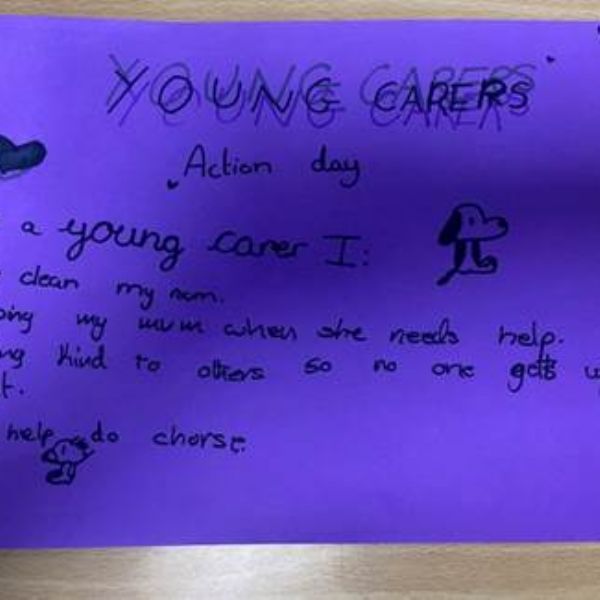 YOUNG CARERS
Action day
a young carer I:
clean my mum.
my mum when she needs help.
kind to others so no one gets
help do chorse